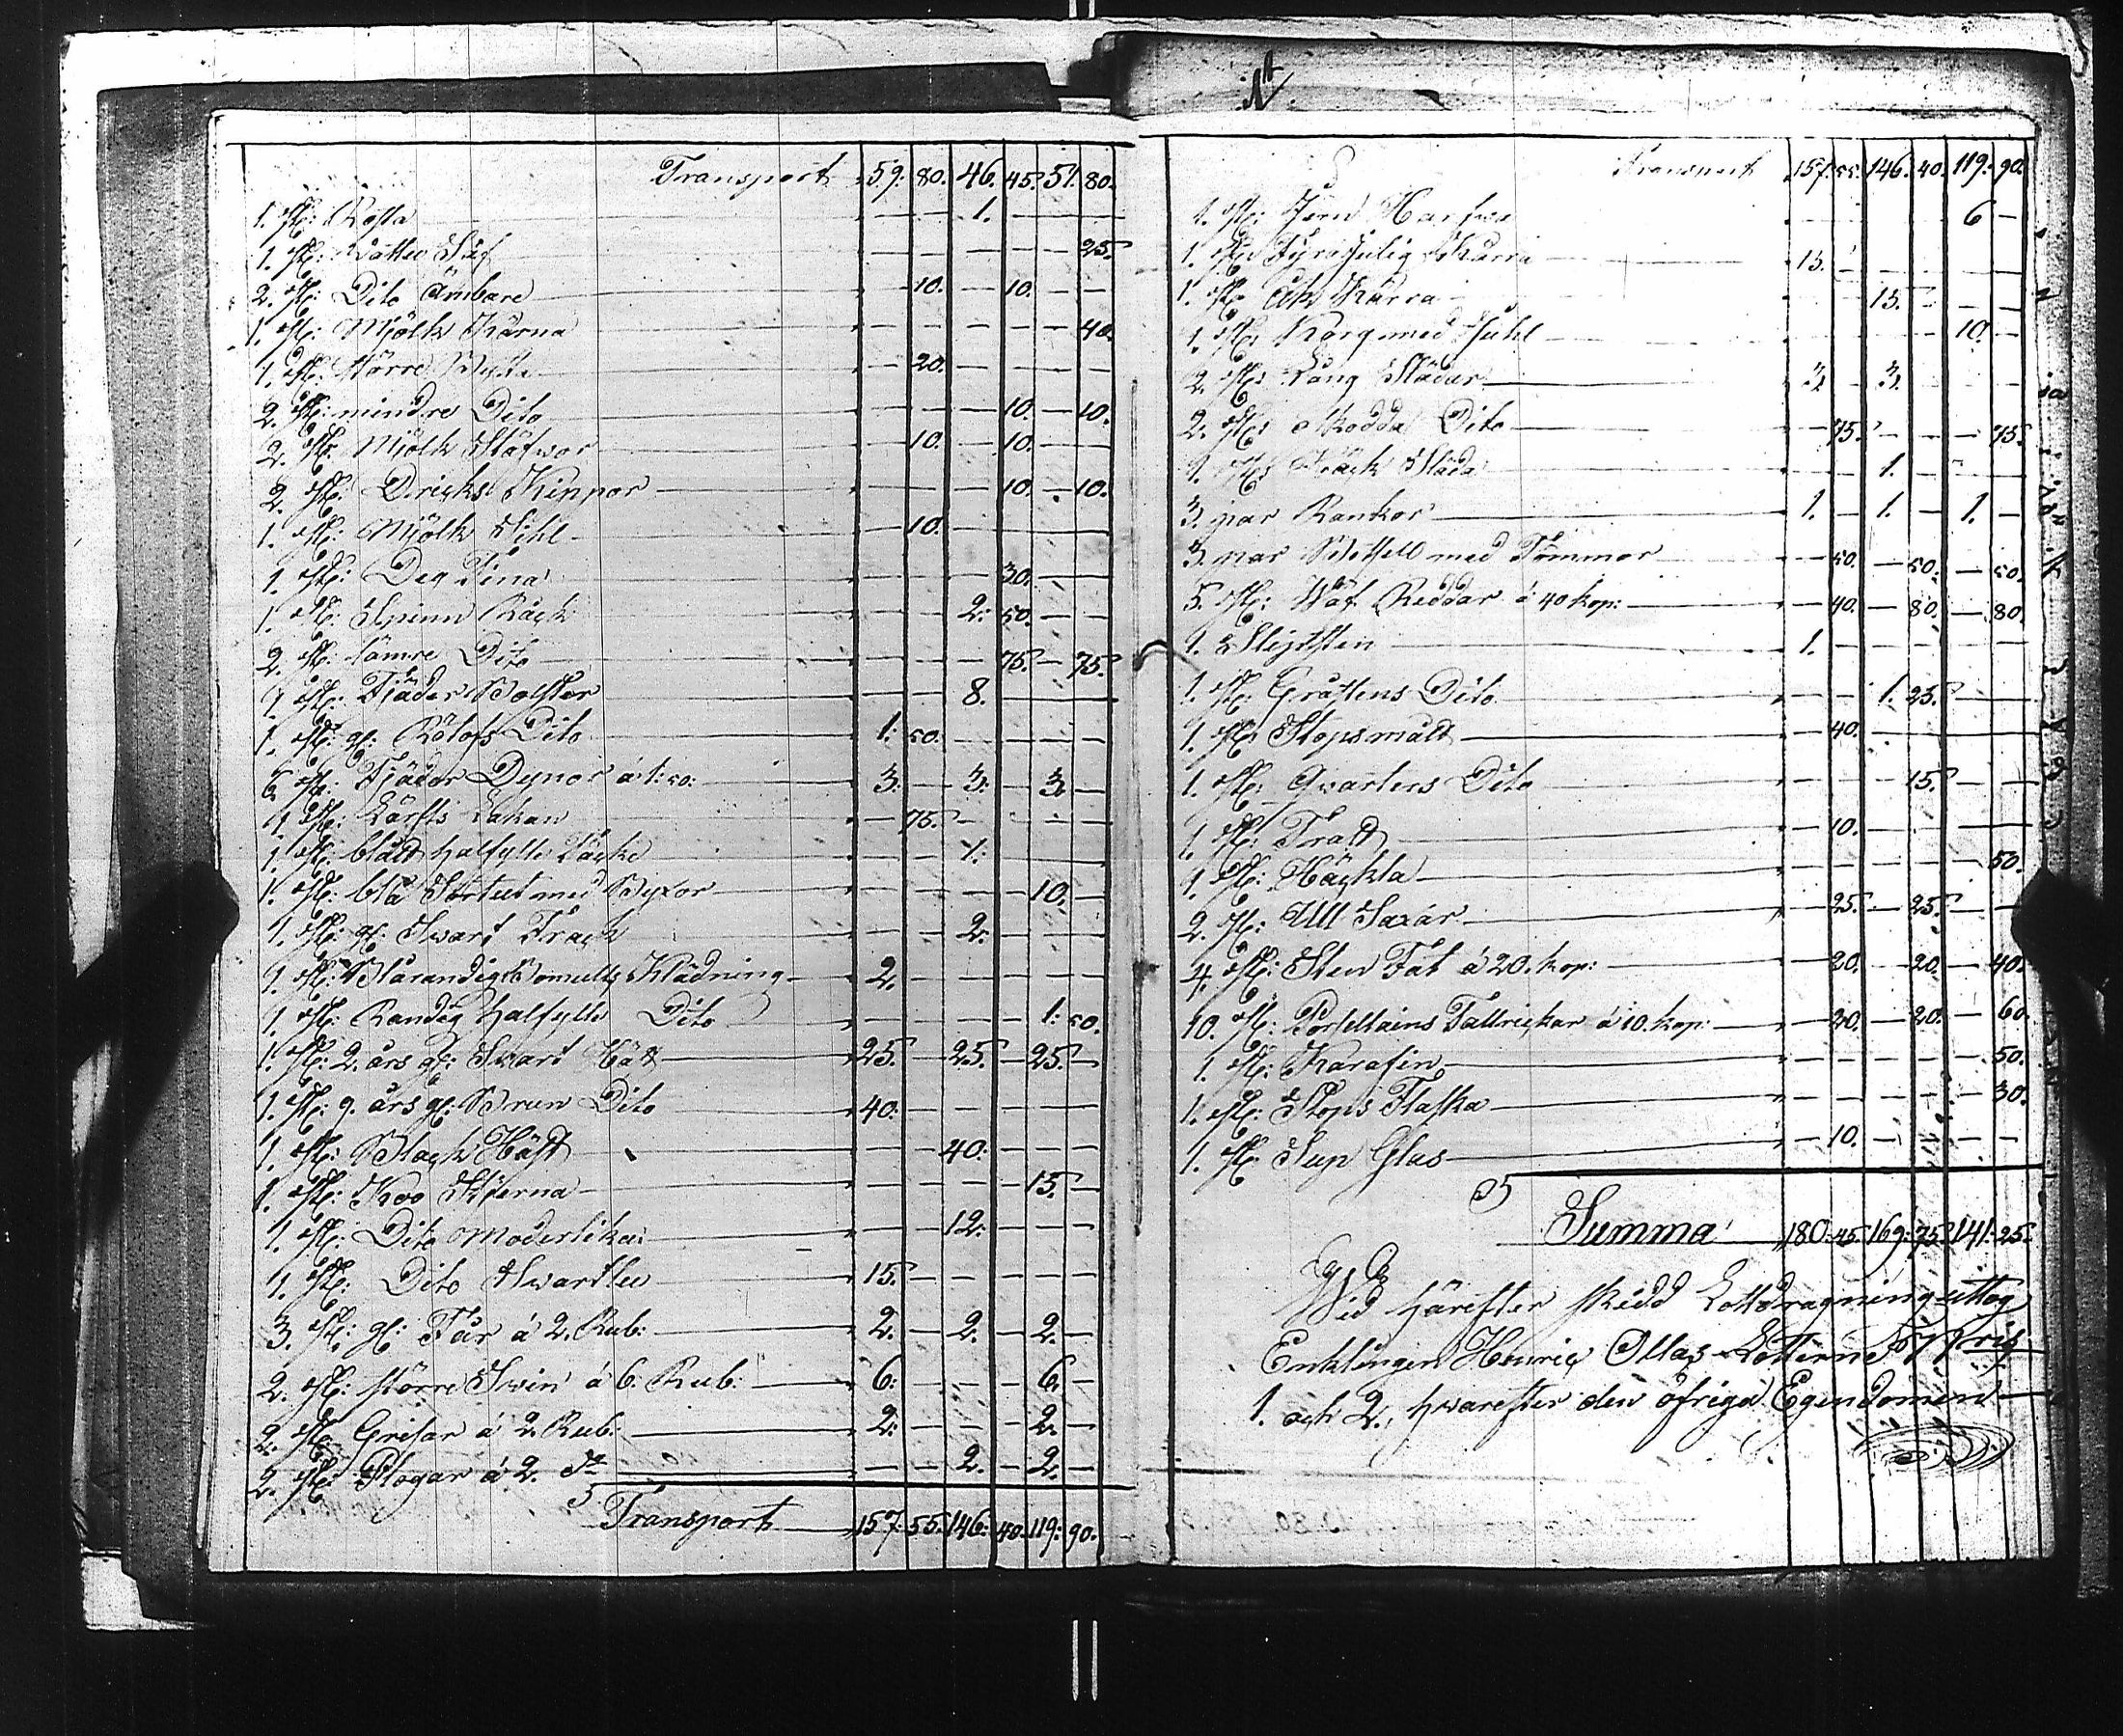 Transport 59: 80. 46. 45. 51. 80.
1. st: Kista 1.
1. st: Watten Så 25.
2. st: Dito Ämbare 10. 10.
1. st: Mjölk Kärna 40.
1. st: större Bytta 20.
2. st: mindre Dito 10. 10.
2. st: Mjölk Stäfwor 10. 10.
2. st: Dricks Kippor 10. 10.
1. st: Mjölk Sihl 10.
1. st: Deg Tina 30.
1. st: Spinn Råck 2: 50.
2. st: sämre Dito 75. 75.
1. st: Fjäder Bolster 8.
1. st: gl: Dito 1: 50.
6. st: Fjäder Dynor á 1: 50: 3. 3. 3.
1. st: Lärfts Lakan 75.
1. st: blått halfylle Täcke 1:
1. st: blå Sortut med Byxor 10.
1. st: gl: Swart Frack 2.
1. st: Blårandig Bomulls Klädning 2.
1. st: Randig halfylle Dito 1: 50.
1. st: 2. års gl: Swart Häst 25. 25. 25.
1. st: 9. års gl: Brun Dito 40:
1. st: Black Häst 40:
1. st: Koo Stierna 15.
1. st: Dito Moderlika 12:
1. st: Dito Swartlen 15.
3. st: gl: Får á 2. Rub: 2. 2. 2.
2. st: större Swin á 6: Rub: 6: 6.
2. st: Grisar á 2. Rub: 2: 2.
2. st: Plogar á 2. do 2. 2.
Transport 157: 55. 146: 40. 119: 90.
Transport 157: 55. 146. 40. 119: 90.
1. st: Jern Harfwa 6
1. st: Fyrahjulig Kärra 15.
1. st: Åk Kärra 15.
1. st: Korg med Hjuhl 10.
2. st: Lång Slädar 3. 3.
2. st: Skodda Dito 75. 75.
1. st: Räck Släda 1.
3. par Rankor 1. 1. 1.
3. par Bettsell med Tömmar 50. 50. 50.
5. st: Wäf Reddar á 40 kop: 40. 80. 80.
1. Slipsten 1.
1. st: Gråstens Dito 1. 25.
1. st: Stopsmått 40.
1. st: Qwarters Dito 15.
1. st: Tratt 10.
1. st: Häckla 50.
2. st: Ull Saxar 25. 25.
4. st: Sten Fat á 20. kop: 20. 20. 40.
10. st: Porsellains Tallrickar á 10. kop: 20. 20. 60.
1. st: Karafin 50.
1. st: Stops Flaska 30.
1. st: Sup Glas 10.
Summa 180: 45. 169: 75. 141: 25.
Wid härefter skedd Lottdragning uttog
Enklingen Henric Ollas Lotterne
1. och 2., hwarefter den öfriga Egendomen